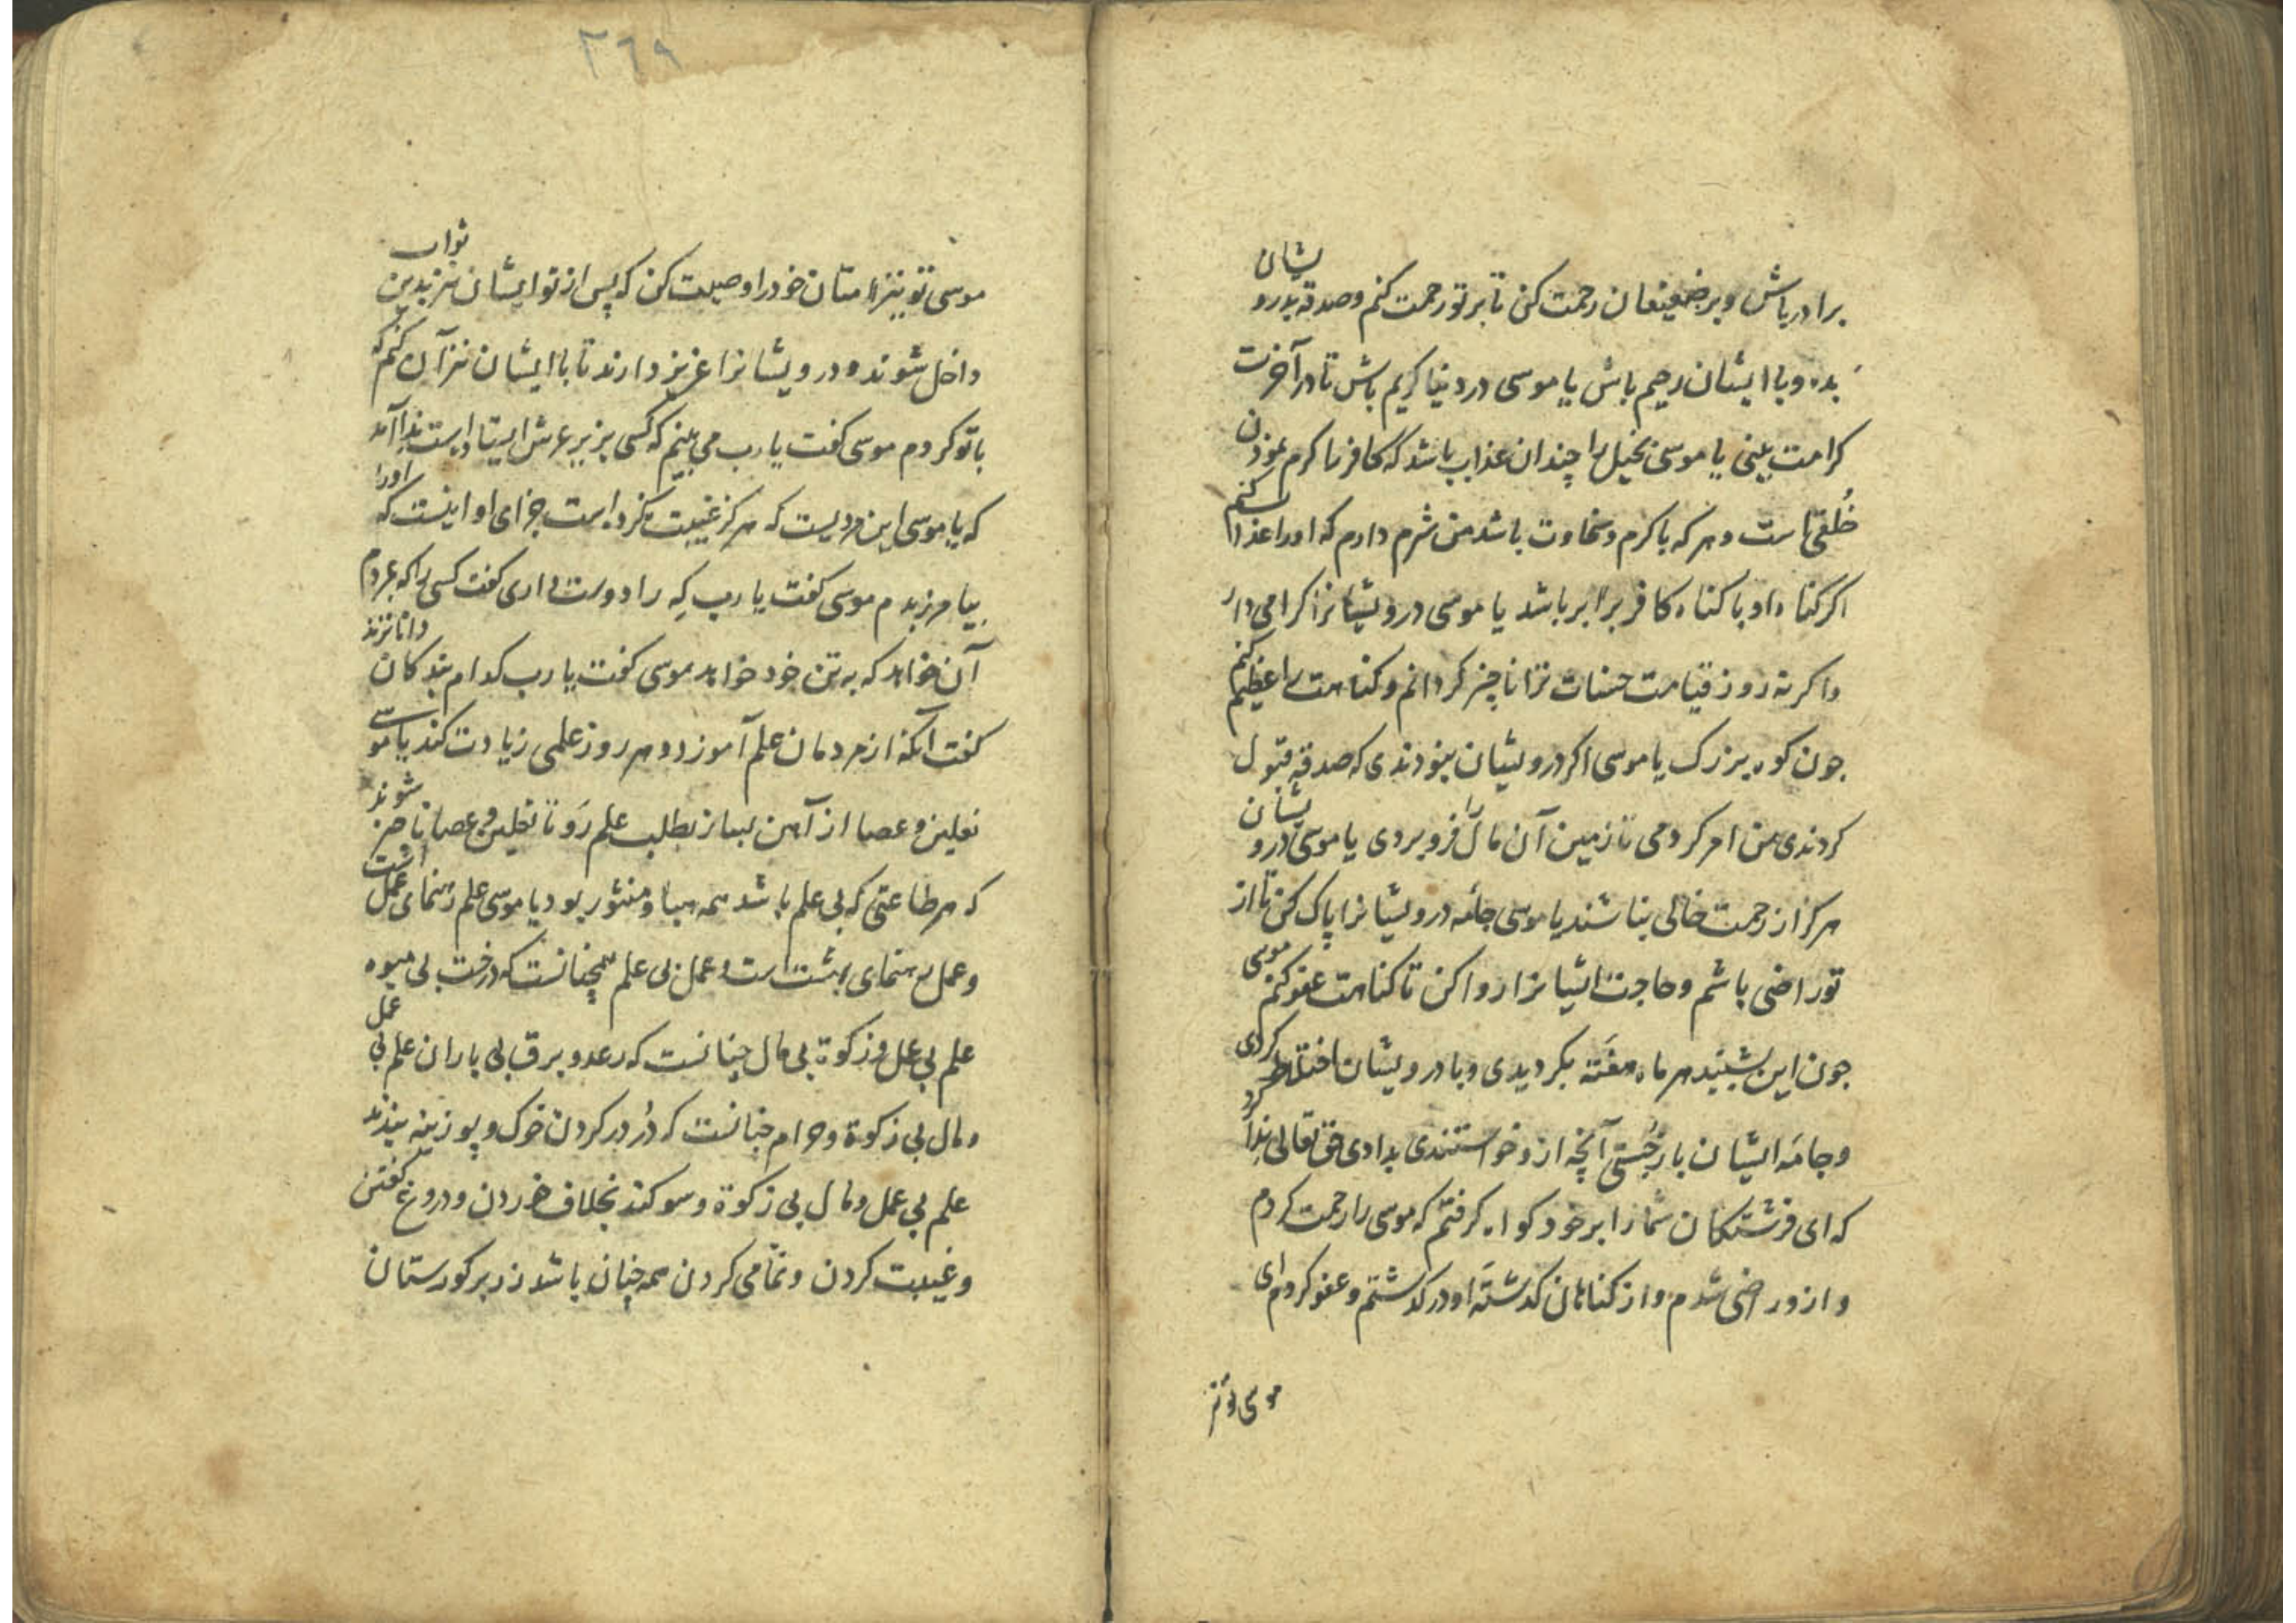 برادر باش و بر ضعیفان رحمت کن تا بر تو رحمت کنم و صدقه بدرویشان
بده و با ایشان رحیم باش یا موسی در دنیا کریم باش تا در آخرت
کرامت بینی یا موسی بخیل را چندان عذاب باشد که کافر را کرم
خُلقی است و هر که با کرم و سخاوت باشد من شرم دارم که او را عذاب کنم
اکر کناه او با کناه کافر برابر باشد یا موسی درویشانرا کرامی دار
و اکر نه روز قیامت حسنات ترا ناچیز کردانم و کناهت را عظیم کنم
جون کوه بزرک یا موسی اکر درویشان نبودندی که صدقه قبول
کردندی من امر کردمی تا زمین آن مال را فرو بردی یا موسی درویشان
هرکز از رحمت خالی نباشند یا موسی جامه درویشانرا پاک کن تا از
تو راضی باشم و حاجت ایشانرا روا کن تا کناهت عفو کنم موسی
جون این بشنید هر ماه هفته بکردیدی و با درویشان اختلاط کردی
و جامه ایشان باز جُستی آنچه ازو خواستندی بدادی حق تعالی ندا کرد
که ای فرشتکان شما را بر خود کواه کرفتم که موسی را رحمت کردم
و ازو راضی شدم و از کناهان کذشته او در کذشتم و عفو کردم ای
موسی تو نیز
٢٦٩
موسی تو نیز امتان خود را وصیت کن که پس از تو ایشان نیز بدین ثواب
داخل شوند و درویشانرا عزیز دارند تا با ایشان نیز آن کنم که
با تو کردم موسی کفت یا رب می بینم که کسی بزیر عرش ایستاده است ندا آمد
که یا موسی این مردیست که هرکز غیبت نکرده است جزای او اینست که او را
بیامرزیدم موسی کفت یا رب که را دوست داری کفت کسی را که بمردم
آن خواهد که به تن خود خواهد موسی کفت یا رب کدام بندکان داناترند
کفت آنکه از مردمان علم آموزد و هر روز علمی زیادت کند یا موسی
نعلین و عصا از آهن بساز بطلب علم رَو تا نعلین و عصا ناچیز شوند
که هر طاعتی که بی علم باشد همه هباء منثور بود یا موسی علم رهنمای عمل است
و عمل رهنمای بهشت است و عمل بی علم همچنانست که درخت بی میوه
علم بی عمل و زکوة بی مال چنانست که رعد و برق بی باران علم بی عمل
و مال بی زکوة و حرام چنانست که دُر در کردن خوک و پوزینه بندند
علم بی عمل و مال بی زکوة و سوکند بخلاف خوردن و دروغ کفتن
و غیبت کردن و نمّامی کردن همه چنان باشد زد بر کورستان